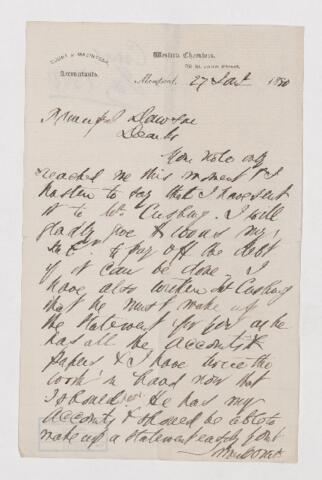 COURT & MACINTOSH
Accountants.
Western Chambers,
Montreal, 27 Jan 1880
Principal Dawson
Dear Sir
Your note only
reached me this moment & I
hasten to say that I have sent
it to Mr. Cushing. I will
gladly give & bonus my
to pay off the debt
if it can be done. I
have also written Mr Cushing
that he must make up
the statement for you as he
has all the accounts &
papers & I have twice the
work in hand now that
I should. He has my
accounts & should be able to
make up a statement easily